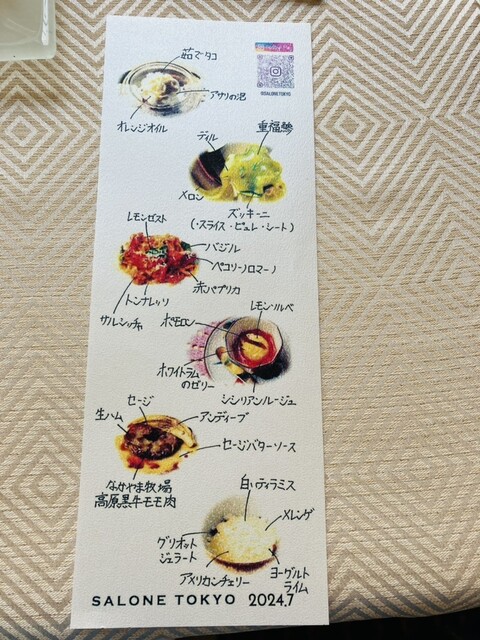 茹でタコ
アサリの泡
オレンジオイル
@SALONETOKYO
ディル
重福鯵
メロン
ズッキーニ
(・スライス・ピュレ・シート)
レモンゼスト
バジル
ペコリーノロマーノ
赤パプリカ
トンナレッリ
サルシッチャ
レモンソルベ
ポモロン
ホワイトラム
のゼリー
シシリアンルージュ
セージ
生ハム
アンディーブ
セージバターソース
なかやま牧場
高原黒牛モモ肉
白いティラミス
メレンゲ
グリオット
ジェラート
アメリカンチェリー
ヨーグルト
ライム
SALONE TOKYO 2024.7